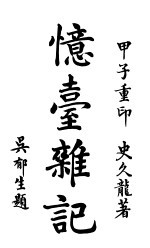 甲子重印　史久龍著
憶臺雜記
吳郁生題